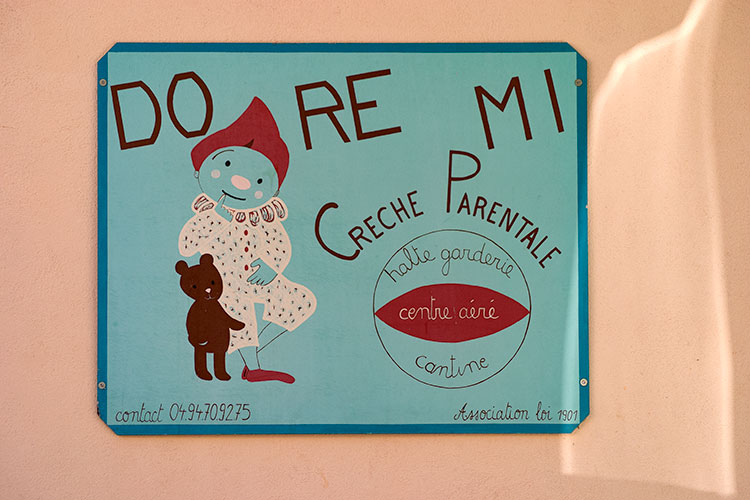 DO RE MI
CRECHE PARENTALE
halte garderie
centre aéré
cantine
contact 04.94.70.92.75
Association loi 1901